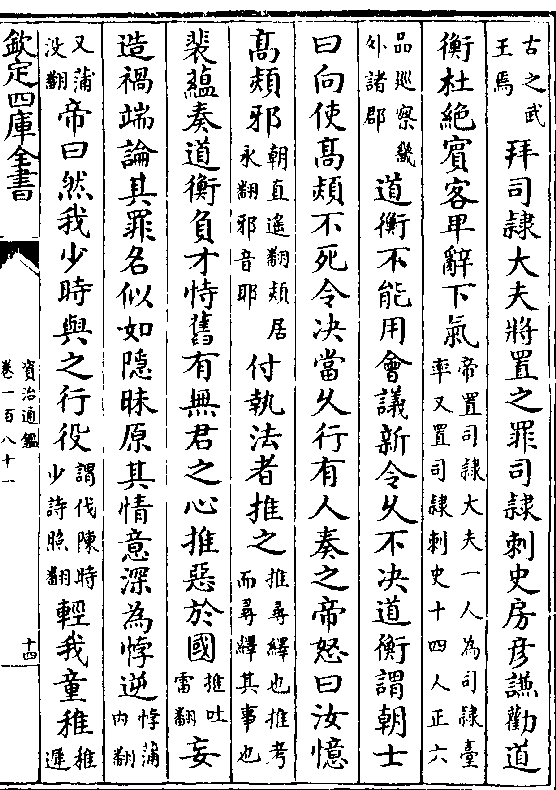 古之武
王焉
拜司隸大夫將置之罪司隸刺史房彦謙勸道
衡杜絶賓客卑辭下氣
帝置司隸大夫一人為司隸臺
率又置司隸刺史十四人正六
品巡察畿
外諸郡
道衡不能用會議新令久不决道衡謂朝士
曰向使高熲不死令决當久行有人奏之帝怒曰汝憶
高熲邪
朝直遥翻熲居
永翻邪音耶
付執法者推之
推尋繹也推考
而尋繹其事也
裴藴奏道衡負才恃舊有無君之心推惡於國
推吐
雷翻
妄
造禍端論其罪名似如隠昧原其情意深為悖逆
悖蒲
内翻
又蒲
没翻
帝曰然我少時與之行役
謂伐陳時
少詩照翻
輕我童稚
稚
遲
欽定四庫全書
資治通鑑
卷一百八十一
十四